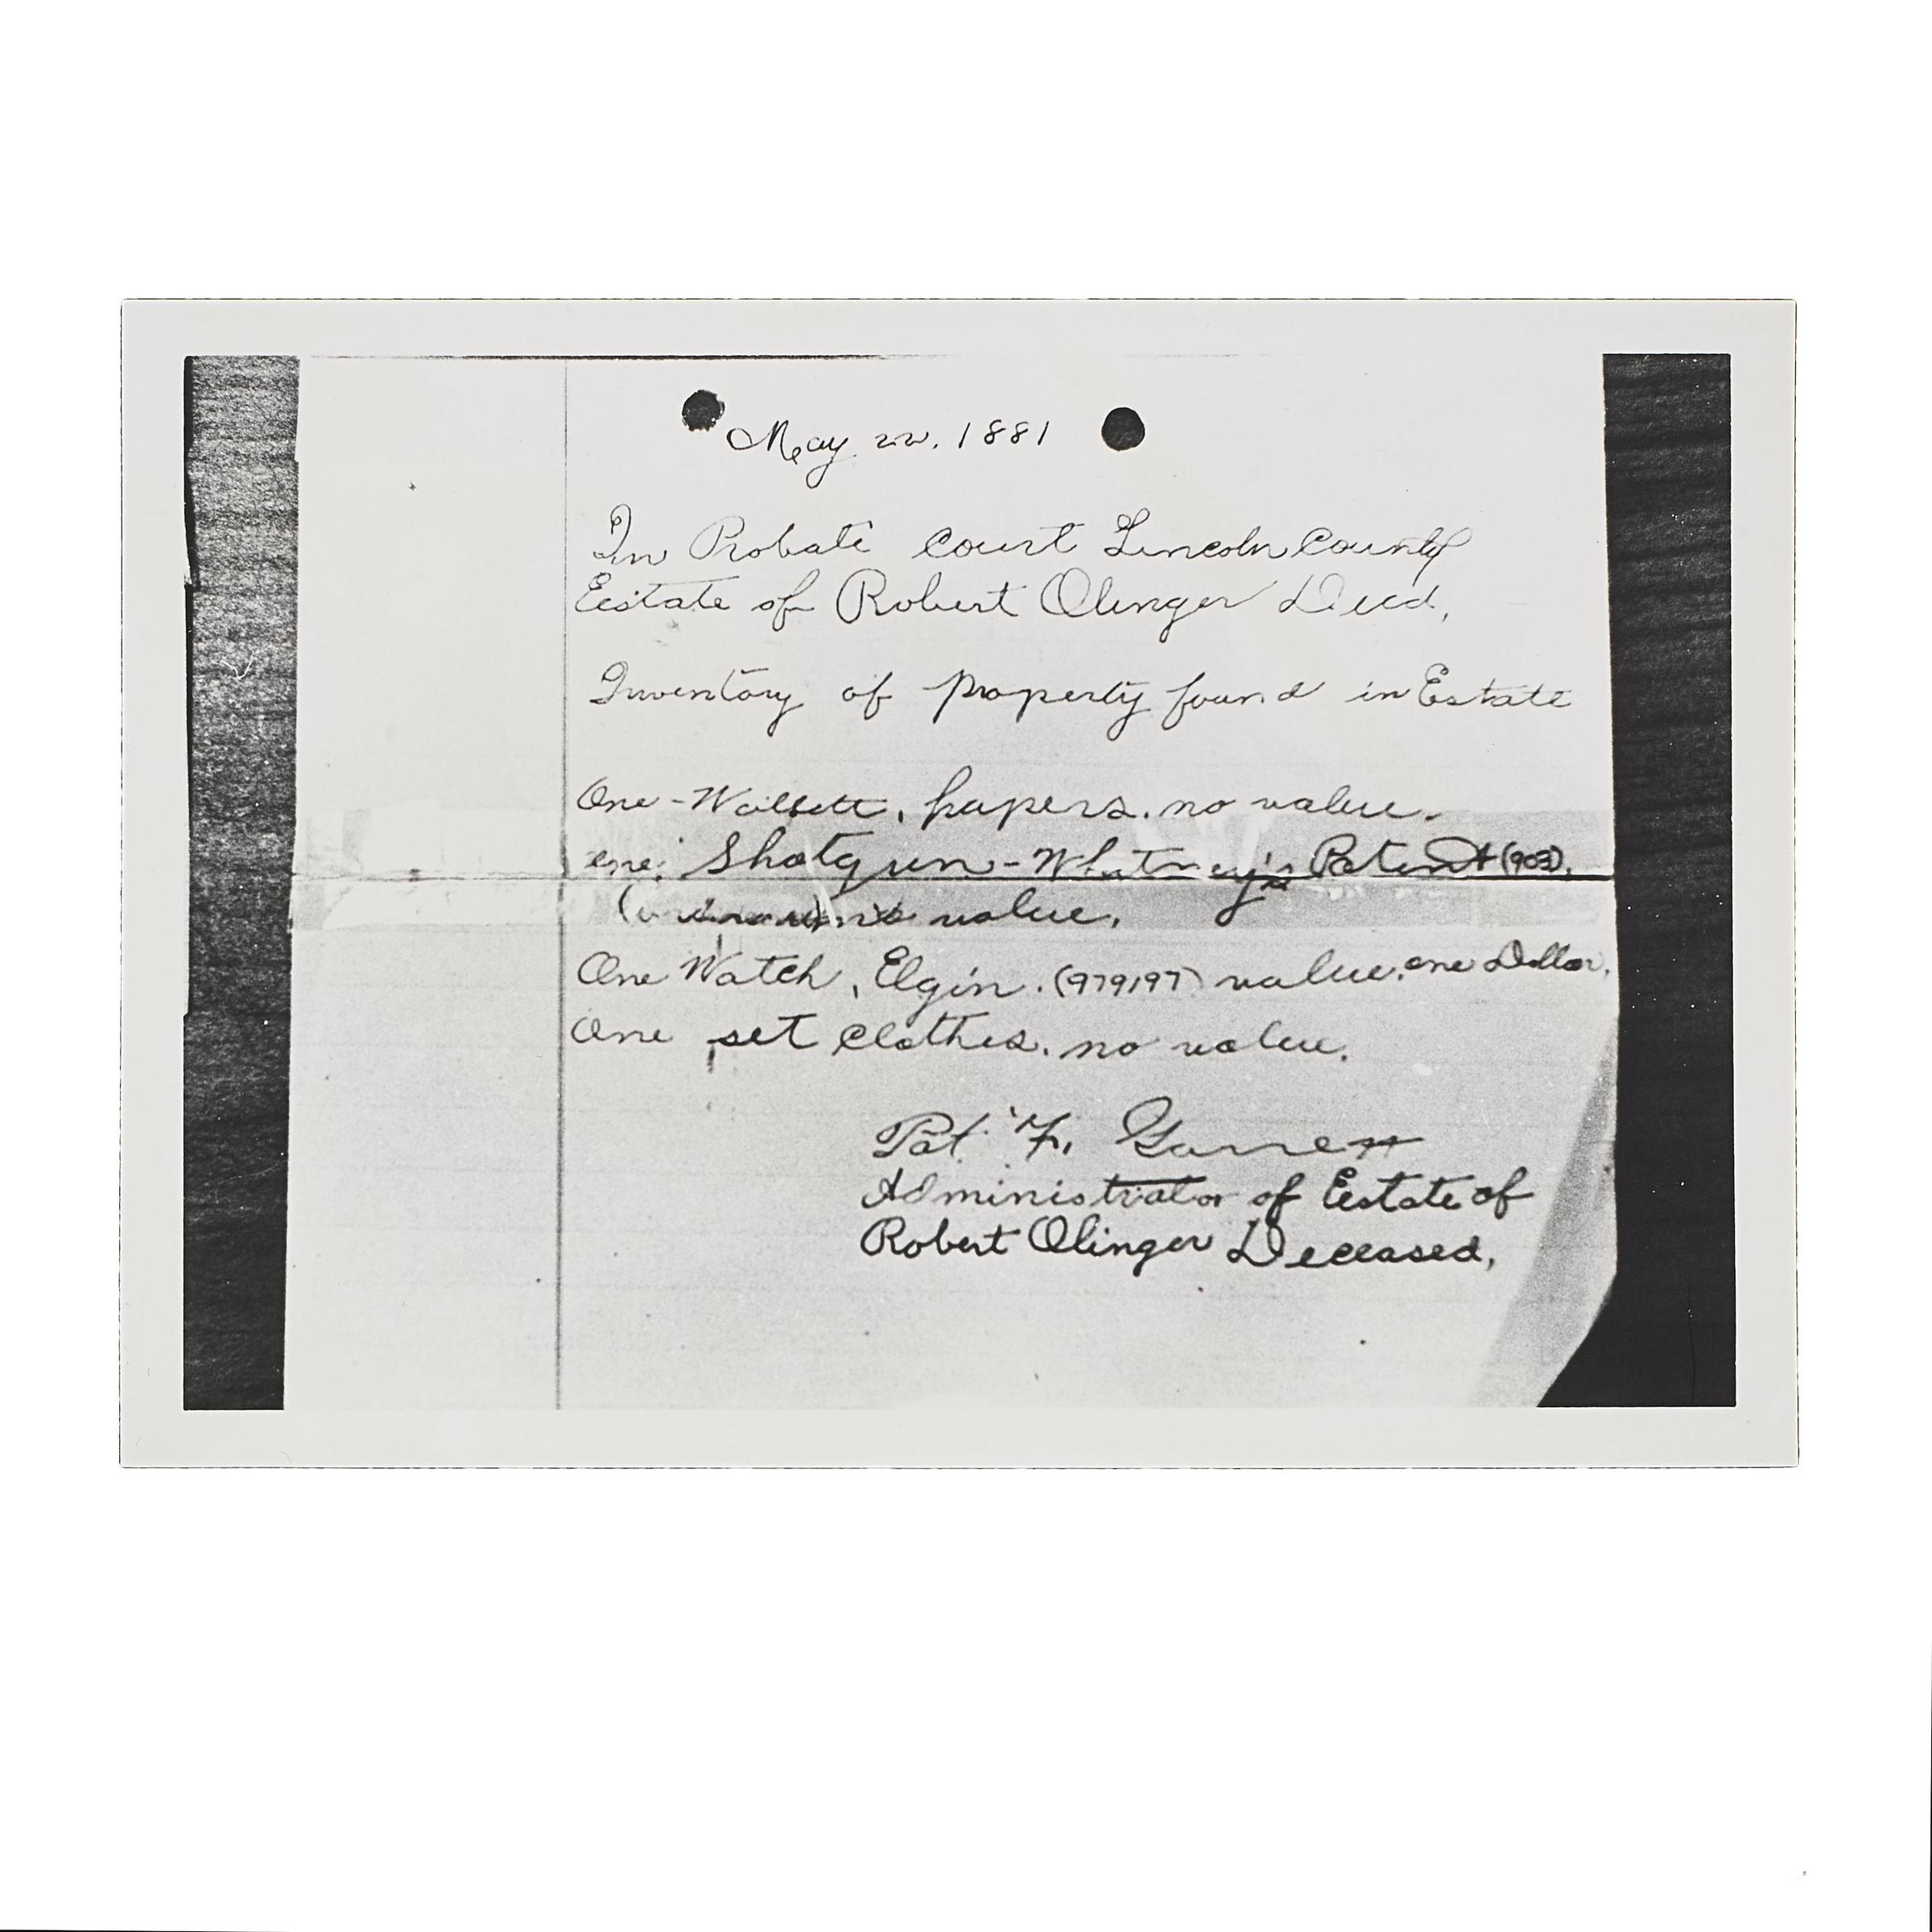 May 22. 1881
In Probate Court Lincoln County
Estate of Robert Olinger Decd,
Inventory of property found in Estate
One - Wallett, papers. no value.
one: Shotgun - Whitney's Patent (903).
no value,
One Watch, Elgin. (979197) value. one Dollar.
One set clothes. no value.
Pat. F. Garrett
Administrator of Estate of
Robert Olinger Deceased,